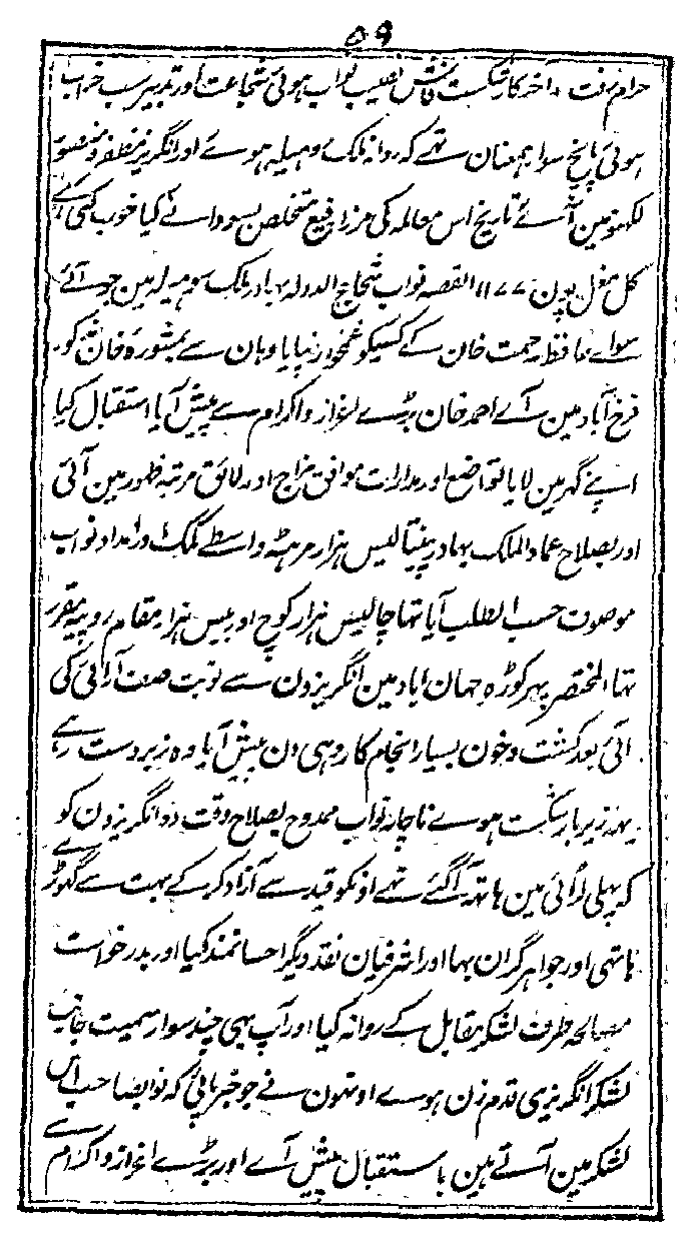 ۵۹
حرام رفت ۔ آخر کار شکست فاش نصیب نواب ہوئی شجاعت اور تدبیر سب خراب
ہوئی پانچ سوار ہمعنان تھے کہ روانہ ملک روہیلہ ہوے اور انگریز مظفر و منصور
لکھنؤ مین آئے تاریخ اس معاملہ کی مرزا رفیع متخلص بسودا نے کیا خوب کہی
کل مغل پون ۱۱۷۷ القصہ نواب شجاع الدولہ بہادر ملک مین جو آئے
سواے حافظ رحمت خان کے کسیکو غمخوار نپایا وہان سے بمشورہ خان کو۔
فرخ آباد مین آے احمد خان بڑے اعزاز و اکرام سے پیش آیا استقبال کیا
اپنے گہر مین لایا تواضع اور مدارات موافق مزاج اور لائق مرتبہ ظہور مین آئی
اور بصلاح عماد الملک بہادر پینتالیس ہزار مرہٹہ واسطے کمک و امداد نواب
موصوف حسب الطلب آیا تہا چالیس ہزار کوچ اور بیس ہزار مقام روپیہ مقرر
تہا المختصر پہر کوڑہ جہان اباد مین انگریزون سے نوبت صف آرائی کی
آئی بعد کشت و خون بسیار انجام کار وہی ان پیش آیا وہ زبردست رہے
یہہ زیر بار شکست ہوے ناچار نواب ممدوح بصلاح وقت دو انگریزون کو
کہ پہلی لڑائی مین ہاتہہ آگئے تہے اونکو قید سے آزاد کر کے بہت سے گہوڑے
ہاتہی اور جواہر گران بہا اور اشرفیان نقد دیگر احسانمند کیا اور بدرخواست
مصالحہ طرف لشکر مقابل کے روانہ کیا اور آپ بہی چند سوار سمیت جانب
لشکر انگریزی قدم زن ہوے اونہون نے جو خبر پائی کہ نوابصاحب اس
لشکر مین آتے ہین باستقبال پیش آے اور بڑے اعزاز و اکرام سے